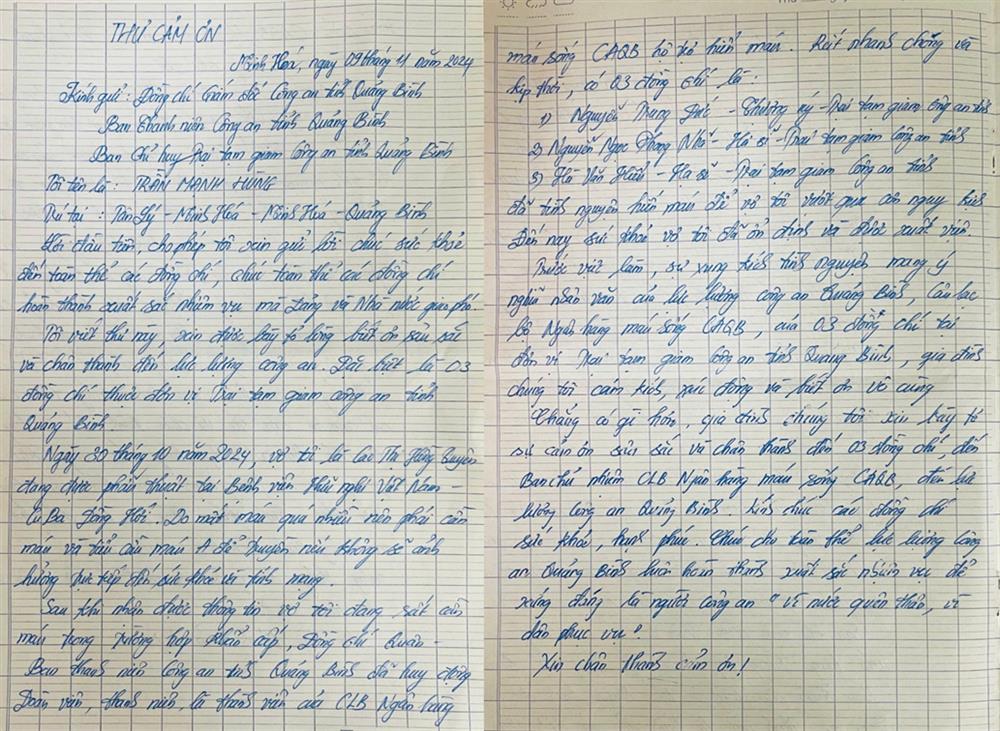 THƯ CẢM ƠN
Minh Hoá, ngày 09 tháng 11 năm 2024
Kính gửi: Đồng chí Giám đốc Công an tỉnh Quảng Bình
Ban Thanh niên Công an tỉnh Quảng Bình
Ban Chỉ huy Trại tạm giam công an tỉnh Quảng Bình
Tôi tên là: TRẦN MẠNH HÙNG
Trú tại: Tân Lý - Minh Hoá - Minh Hoá - Quảng Bình
Lời đầu tiên, cho phép tôi xin gửi lời chúc sức khoẻ
đến toàn thể các đồng chí, chúc toàn thể các đồng chí
hoàn thành xuất sắc nhiệm vụ mà Đảng và Nhà nước giao phó.
Tôi viết thư này, xin được bày tỏ lòng biết ơn sâu sắc
và chân thành đến lực lượng công an. Đặc biệt là 03
đồng chí thuộc đơn vị Trại tạm giam công an tỉnh
Quảng Bình.
Ngày 30 tháng 10 năm 2024, vợ tôi là Cao Thị Hồng Quyên
đang được phẫu thuật tại Bệnh viện Hữu nghị Việt Nam -
Cu Ba Đồng Hới. Do mất máu quá nhiều nên phải cần
máu và tiểu cầu máu A để truyền nếu không sẽ ảnh
hưởng trực tiếp đến sức khoẻ và tính mạng.
Sau khi nhận được thông tin vợ tôi đang rất cần
máu trong trường hợp khẩn cấp, Đồng chí Quân -
Ban thanh niên Công an tỉnh Quảng Bình đã huy động
Đoàn viên, thanh niên, là thành viên của CLB Ngân hàng
máu sống CAQB hỗ trợ hiến máu. Rất nhanh chóng và
kịp thời, có 03 đồng chí là:
1) Nguyễn Trung Đức - Thượng uý - Trại tạm giam Công an tỉnh
2) Nguyễn Ngọc Phong Nhã - Hạ sĩ - Trại tạm giam Công an tỉnh
3) Hà Văn Hiếu - Hạ sĩ - Trại tạm giam Công an tỉnh
đã tình nguyện hiến máu để vợ tôi vượt qua cơn nguy kịch
Đến nay sức khoẻ vợ tôi đã ổn định và được xuất viện
Trước việc làm, sự xung kích tình nguyện mang ý
nghĩa nhân văn của lực lượng công an Quảng Bình, Câu lạc
bộ Ngân hàng máu sống CAQB, của 03 đồng chí tại
đơn vị Trại tạm giam công an tỉnh Quảng Bình, gia đình
chúng tôi cảm kích, xúc động và biết ơn vô cùng
Chẳng có gì hơn, gia đình chúng tôi xin bày tỏ
sự cảm ơn sâu sắc và chân thành đến 03 đồng chí, đến
Ban chủ nhiệm CLB Ngân hàng máu sống CAQB, đến lực
lượng Công an Quảng Bình. Kính chúc các đồng chí
sức khoẻ, hạnh phúc. Chúc cho toàn thể lực lượng công
an Quảng Bình luôn hoàn thành xuất sắc nhiệm vụ để
xứng đáng là người công an "Vì nước quên thân, vì
dân phục vụ".
Xin chân thành cảm ơn!